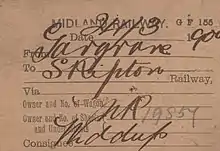 MIDLAND RAILWAY. G F 155
Date 2/3 190
From Gargrave
To Skipton
Railway,
Via
Owner and No. of Wagon, MR 19854
Owner and No. of Sheets
and Under
Consignee